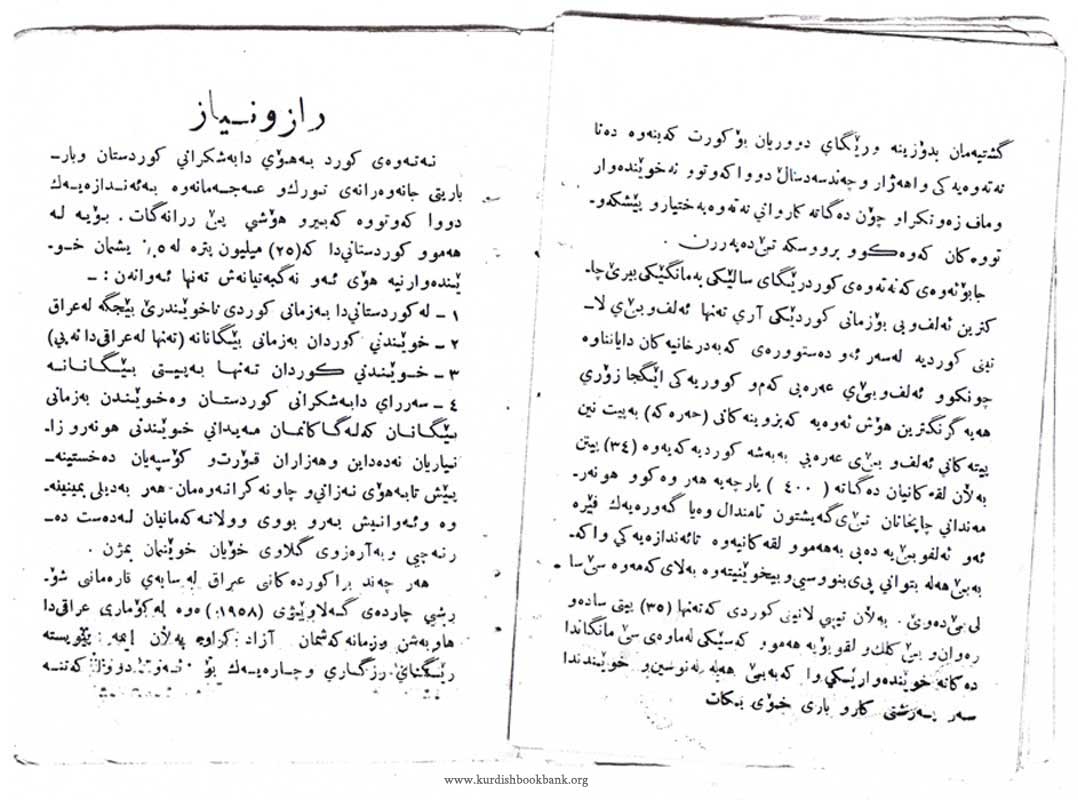 رازونـیاز
نـەتـەوەی کورد بـەهـۆي دابەشکرانی کوردستان وبارـ
باریتي جانەوەرانەی تورك‌و عـەجـەمانەوە بەئەندازەیـەك
دووا کەوتووە کەبیرو هۆشي پێ ررانەگات. بـۆیـە لـە
هەمموو کوردستانی‌دا کە(٢٥) ملیون پترە لە ٥٪ یشمان خـوـ
ێندەوارنیە هۆی ئـەو نەگبەتیانەش تەنها ئـەوانەن: ـ
١ ـ لەکوردستانی‌دا بـەزمانی کوردی ناخوێندرێ بێجگە لەعراق
٢ ـ خوێندني کوردان بەزمانی بێگانانە (تەنها لەعراقی‌دا نەبی)
٣ ـ خـوێـندني کـوردان تـەنـها بـەپیـتی بـێـگـانـانـە
٤ ـ سـەررای دابـەشکرانی کوردستـان وەخـوێـنـدن بەزمانی
بێگـانـان کەلەگاکانمان مـەیـداني خـوێـندنی هونەرو زاـ
نیاریان نەدەداین وهەزاران قـۆرت‌و کۆسپەیان دەخستینەـ
پـێش تابەهۆی نـەزانی‌و چاونەکرانەوەمان هەر بەدیلی بمینینەـ
وە وئـەوانیـش بـەرو بووی وولاتەکەمانیان لـەدەست دەـ
رنـەچی وبـەئارەزوی گلاوی خۆیان خوێنمان بمژن .
هەر چەند براکوردەکانی عیراق لەسایەي قارەمانی شۆـ
رشي چاردەی گـەلاوێـژی (١٩٥٨)ەوە لەکۆماری عراقی‌دا
هاوبەشن وزمانەکەشمان آزاد کراوە بەلآن ئیمە پێویستە
رێـگـای رزگـاري وچـارەیـەك بۆ
گشتیەمان بدۆزینە ورێگای دووریان بۆ کورت کەینەوە دەنا
نەتەوەیەکی واهەژار وچەندسەدسال دوواکەوتوو نەخوێندەوار
وماف زەوتکراو چۆن دەگاتە کاروانی نەتەوە بەختیارو پێشکەوـ
تووەکان کەوەکـوو برووسکە تێ‌دەپەررن .
جابۆئەوەی کەنەتەوەی کوردرێگای ساڵێکی بەمانگێکی ببرێ چاـ
کترین ئەلف‌وبی بۆزمانی کوردێکی آري تەنها ئەلف‌وبێ‌ي لاـ
تینی کوردیە لەسەر ئەو دەستوورەی کەبەدرخانیەکان دایانناوە
چونکوو ئەلف‌وبێ‌ي عەرەبی کەم‌و کووریەکی ایێگجا زۆري
هەیە گرنگترین هۆش ئەوەیە کەبزوینەکانی (حەرەکە) بەپیت نین
پیتەکاني ئەلف‌و بـێ‌ی عەرەبي بەبەشە کوردیەکەیەوە (٣٤) پیتن
بەلآن لقەکانیان دەگاتە ( ٤٠٠ ) پارچەیە هەر وەکوو هونەرـ
مەنداني چاپخانان تـێ‌ی گەیشتون تامندال وەیا گەورەیەك فێرە
ئەو ئەلفوبێ‌یە دەبی بەهەموو لقەکانیەوە تائەندازەیەکي واکەـ
بەبێ هەلە بتوانی پی‌ی بنووسی‌و بیخوێنیتەوە بەلای کەمەوە سێ ساـ
لی بێ‌دەوێ . بەلآن تیپي لاتیني کوردی کەتەنها (٣٥) پیتی سادەو
رەوان‌و بـێ کلك‌و لقو بۆیە هەموو کەسێکی لەماوەی سێ مانگاندا
دەکاتە خوێندەوارێـکي وا کەبەبێ هەلە لەنوسین‌و خوێندندا
سـەر بـەرشتی کارو باری خـۆی بـکات
www.kurdishbookbank.org